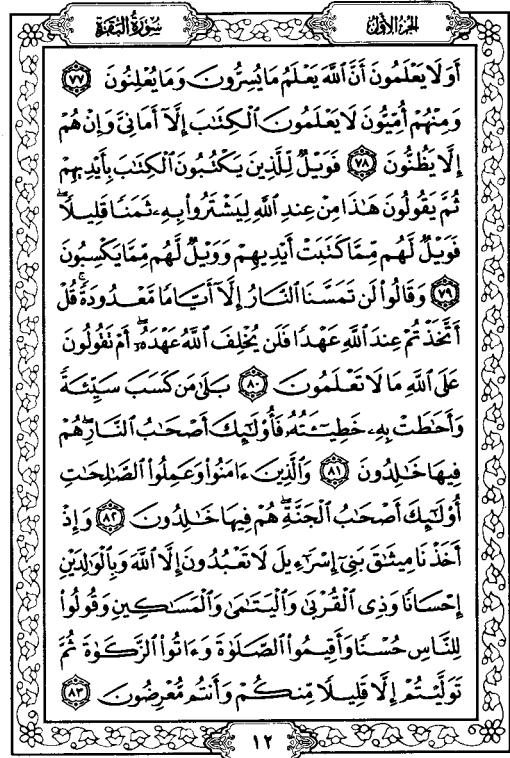 سُورَةُ البَقَرَة
الجزء الأول
أَوَلَا يَعْلَمُونَ أَنَّ ٱللَّهَ يَعْلَمُ مَا يُسِرُّونَ وَمَا يُعْلِنُونَ ٧٧
وَمِنْهُمْ أُمِّيُّونَ لَا يَعْلَمُونَ ٱلْكِتَٰبَ إِلَّآ أَمَانِيَّ وَإِنْ هُمْ
إِلَّا يَظُنُّونَ ٧٨ فَوَيْلٌ لِّلَّذِينَ يَكْتُبُونَ ٱلْكِتَٰبَ بِأَيْدِيهِمْ
ثُمَّ يَقُولُونَ هَٰذَا مِنْ عِندِ ٱللَّهِ لِيَشْتَرُوا۟ بِهِۦ ثَمَنًا قَلِيلًا ۖ
فَوَيْلٌ لَّهُم مِّمَّا كَتَبَتْ أَيْدِيهِمْ وَوَيْلٌ لَّهُم مِّمَّا يَكْسِبُونَ
٧٩ وَقَالُوا۟ لَن تَمَسَّنَا ٱلنَّارُ إِلَّآ أَيَّامًا مَّعْدُودَةً ۚ قُلْ
أَتَّخَذْتُمْ عِندَ ٱللَّهِ عَهْدًا فَلَن يُخْلِفَ ٱللَّهُ عَهْدَهُۥٓ ۖ أَمْ تَقُولُونَ
عَلَى ٱللَّهِ مَا لَا تَعْلَمُونَ ٨٠ بَلَىٰ مَن كَسَبَ سَيِّئَةً
وَأَحَٰطَتْ بِهِۦ خَطِيٓـَٔتُهُۥ فَأُو۟لَٰٓئِكَ أَصْحَٰبُ ٱلنَّارِ ۖ هُمْ
فِيهَا خَٰلِدُونَ ٨١ وَٱلَّذِينَ ءَامَنُوا۟ وَعَمِلُوا۟ ٱلصَّٰلِحَٰتِ
أُو۟لَٰٓئِكَ أَصْحَٰبُ ٱلْجَنَّةِ ۖ هُمْ فِيهَا خَٰلِدُونَ ٨٢ وَإِذْ
أَخَذْنَا مِيثَٰقَ بَنِىٓ إِسْرَٰٓءِيلَ لَا تَعْبُدُونَ إِلَّا ٱللَّهَ وَبِٱلْوَٰلِدَيْنِ
إِحْسَانًا وَذِى ٱلْقُرْبَىٰ وَٱلْيَتَٰمَىٰ وَٱلْمَسَٰكِينِ وَقُولُوا۟
لِلنَّاسِ حُسْنًا وَأَقِيمُوا۟ ٱلصَّلَوٰةَ وَءَاتُوا۟ ٱلزَّكَوٰةَ ثُمَّ
تَوَلَّيْتُمْ إِلَّا قَلِيلًا مِّنكُمْ وَأَنتُم مُّعْرِضُونَ ٨٣
١٢